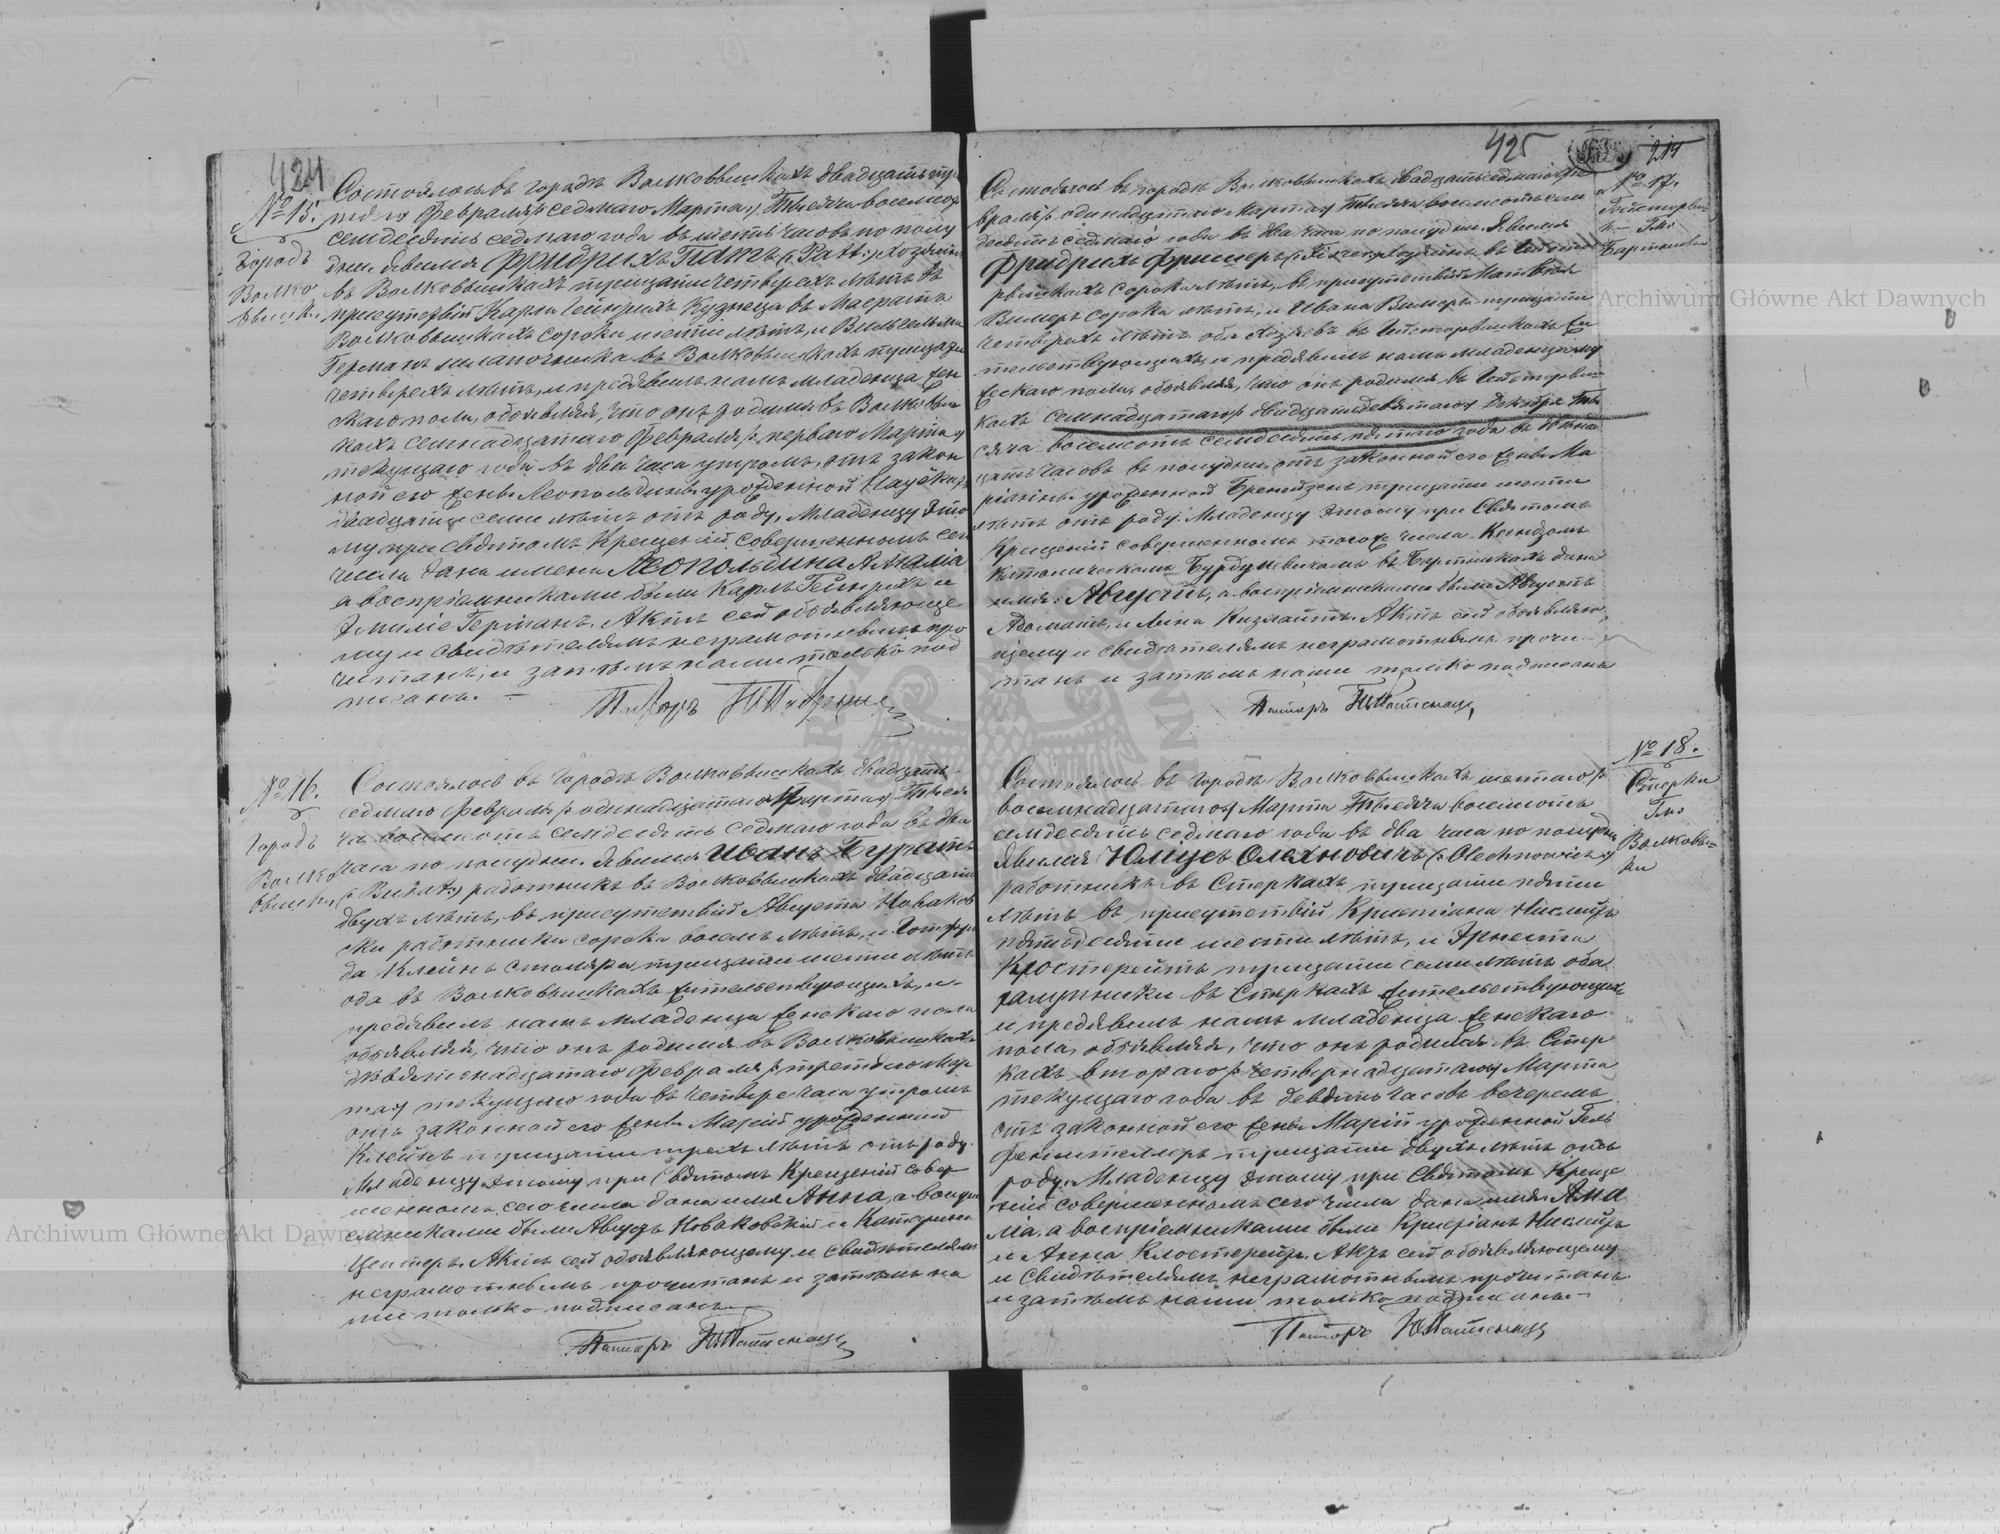 424
№ 15.
Городъ
Волко
вышки
Состоялось въ городѣ Волковышкахъ двадцать пя
таго Февраля /: седмаго Марта :/ Тысяча восемсотъ
семдесятъ седмаго года въ шесть часовъ по полу
дни. Явился Фридрихъ Паттъ (: Patt :) хозяинъ
въ Волковышкахъ тридцати четырехъ лѣтъ въ
присутствіи Карла Гейнрихъ Кузнеца въ
Волковышкахъ сорока шести лѣтъ, и Вильгельма
Германъ шапочника въ Волковышкахъ тридцати
четырехъ лѣтъ, и предъявилъ намъ младенца жен
скаго пола, объявляя, что онъ родился въ Волковыш
кахъ семнадцатаго Февраля /: перваго Марта :/
текущаго года въ два часа утромъ, отъ закон
ной его жены Леопольдины урожденной
двадцати семи лѣтъ отъ роду. Младенцу это
му при Святомъ Крещеніи совершенномъ сего
числа даны имена Леопольдина Амалія
а воспріемниками были Карлъ Гейнрихъ и
Эмилія Германъ. Актъ сей объявляюще
му и свидѣтелямъ неграмотнымъ про
читанъ, и затѣмъ нами только под
писанъ. —
Пасторъ
№ 16.
Городъ
Волко
вышки
Состоялось въ городѣ Волковышкахъ двадцать
седмаго Февраля /: одинадцатаго Марта :/ Тыся
ча восемсотъ семдесятъ седмаго года въ два
часа по полудни. Явился Иванъ Буратъ
(: Burat :) работникъ въ Волковышкахъ двадцати
двухъ лѣтъ, въ присутствіи Августа Новаков
ски работника сорока восемь лѣтъ, и Готфри
да Клейнъ столяра тридцати шести лѣтъ
оба въ Волковышкахъ жительствующихъ, и
предъявилъ намъ младенца женскаго пола
объявляя, что онъ родился въ Волковышкахъ
девятнадцатаго Февраля /: третьяго Мар
та :/ текущаго года въ четыре часа утромъ
отъ законной его жены Маріи урожденной
Клейнъ тридцати трехъ лѣтъ отъ роду.
Младенцу этому при Святомъ Крещеніи совер
шенномъ сего числа дано имя Анна, а воспрі
емниками были Августъ Новаковскій и Катарина
Центеръ. Актъ сей объявляющему и свидѣтелямъ
неграмотнымъ прочитанъ и затѣмъ на
ми только подписанъ.
Пасторъ
425
215
№ 17.
Гмс
Состоялось въ городѣ Волковышкахъ двадцать седмаго Фе
враля /: одинадцатаго Марта :/ Тысяча восемсотъ сем
десятъ седмаго года въ два часа по полудни. Явился
Фридрихъ Фришеръ хозяинъ въ
сорока лѣтъ, въ присутствіи Матвея
Вимеръ сорока лѣтъ, и Ивана Вимеръ тридцати
четырехъ лѣтъ оба хозяевъ въ жи
тельствующихъ, и предъявилъ намъ младенца му
жескаго пола, объявляя, что онъ родился въ
кахъ семнадцатаго /: двадцать девятаго :/ Декабря Ты
сяча восемсотъ семдесятъ пятаго года въ двѣна
цать часовъ въ полудни, отъ законной его жены Ма
ріанны урожденной тридцати шести
лѣтъ отъ роду. Младенцу этому при Святомъ
Крещеніи совершенномъ тогоже числа Ксендзомъ
Католическомъ въ дано
имя: Августъ, а воспріемниками были Августъ
Адоматъ, и Анна Актъ сей объявляю,
щему и свидѣтелямъ неграмотнымъ прочи-
танъ и затѣмъ нами только подписанъ
Пасторъ
№ 18.
Стерки
Гмс
Волковыш
ки
Состоялось въ городѣ Волковышкахъ шестаго /:
восемнадцатаго :/ Марта Тысяча восемсотъ
семдесятъ седмаго года въ два часа по полудни
Явился Юліусъ Олехновичъ (: Olechnowicz :)
работникъ въ Стеркахъ тридцати пяти
лѣтъ въ присутствіи Кристіана
пятьдесяти шести лѣтъ, и Эрнеста
Клостерейтъ тридцати семи лѣтъ оба
въ Стеркахъ жительствующихъ
и предъявилъ намъ младенца женскаго
пола, объявляя, что онъ родился въ Стер
кахъ втораго /: четырнадцатаго :/ Марта
текущаго года въ девять часовъ вечеромъ
отъ законной его жены Маріи урожденной
тридцати двухъ лѣтъ отъ
роду. Младенцу этому при Святомъ Креще
ніи совершенномъ сего числа дано имя: Ама
лія, а воспріемниками были Кристіанъ
и Анна Клостерейтъ. Актъ сей объявляющему
и свидѣтелямъ неграмотнымъ прочитанъ
и затѣмъ нами только подписанъ. —
Пасторъ
Archiwum Główne Akt Dawnych
Archiwum Główne Akt Dawnych